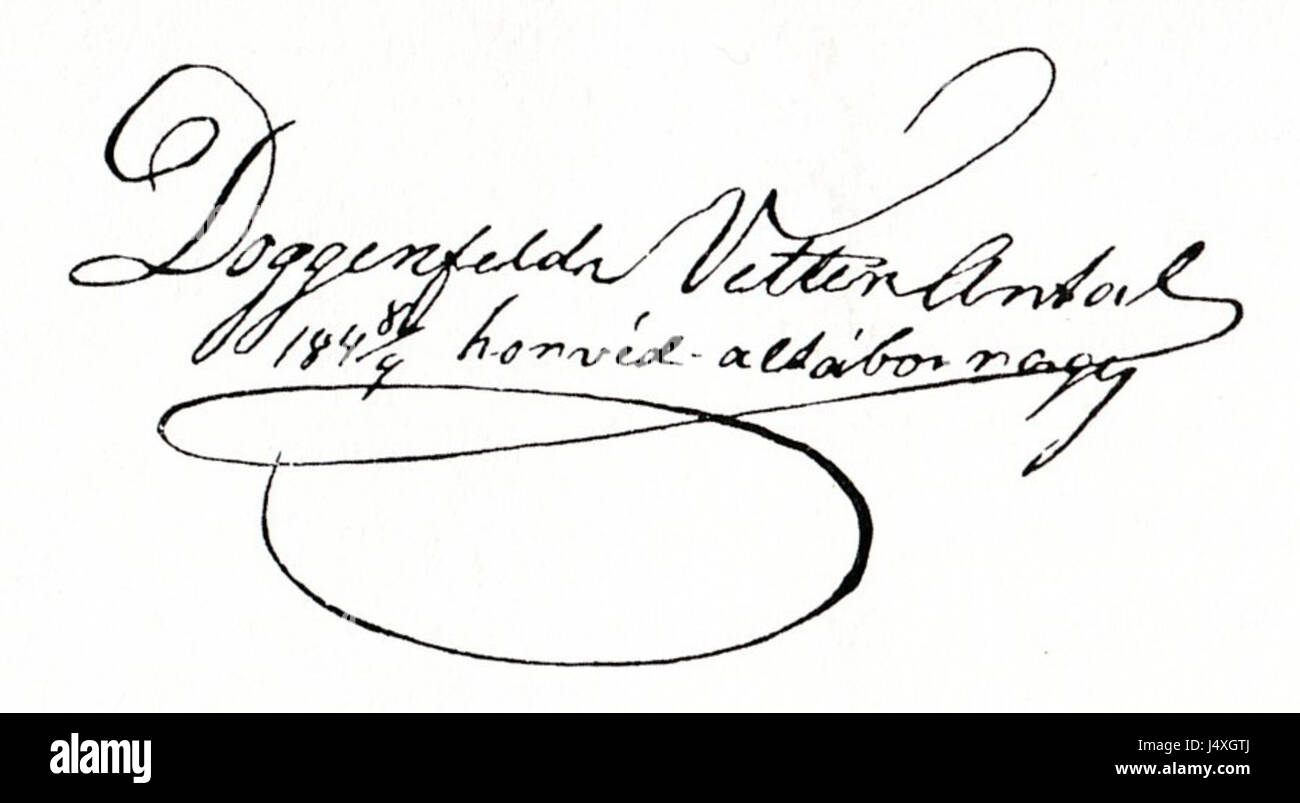 Doggenfeldi Vetter Antal
184 8/9 honvéd-altábornagy
alamy
Image ID: J4XGTJ
www.alamy.com